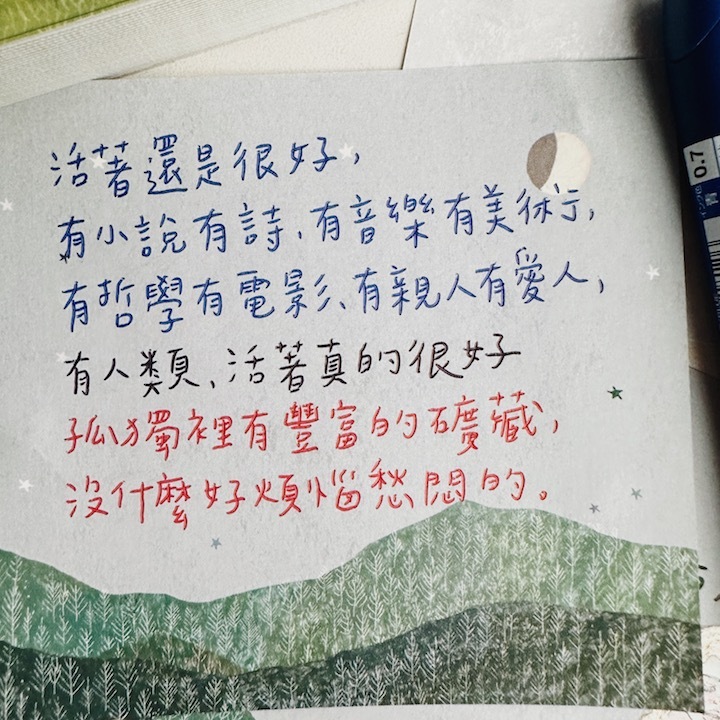 活著還是很好，
有小說有詩、有音樂有美術，
有哲學有電影、有親人有愛人，
有人類、活著真的很好
孤獨裡有豐富的礦藏，
沒什麼好煩惱愁悶的。
0.7